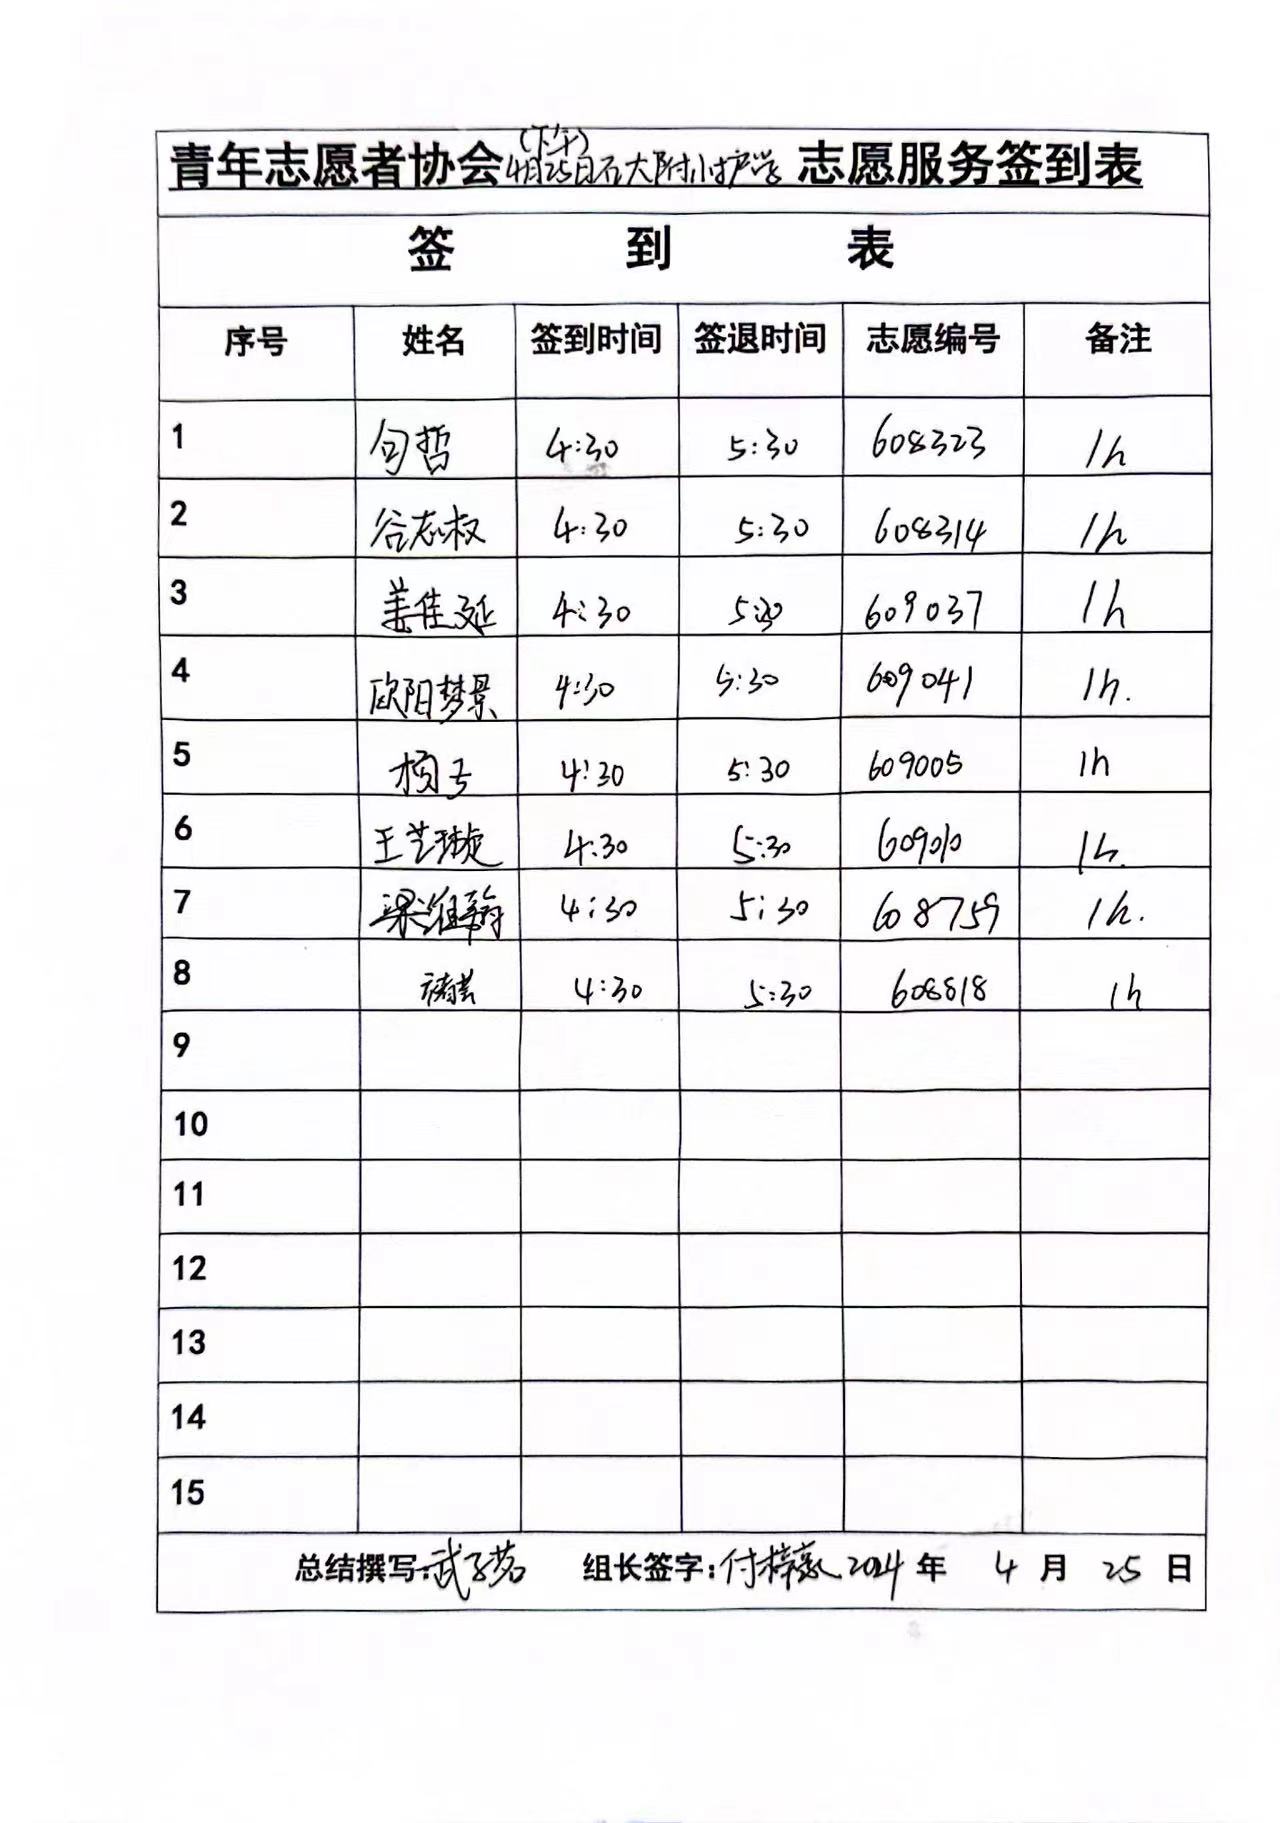 (下午)
青年志愿者协会4月25日石大附小护学 志愿服务签到表
签 到 表
序号 姓名 签到时间 签退时间 志愿编号 备注
1 句哲 4:30 5:30 608323 1h
2 谷志权 4:30 5:30 608314 1h
3 姜佳延 4:30 5:30 609037 1h
4 欧阳梦景 4:30 5:30 609041 1h.
5 4:30 5:30 609005 1h
6 王艺璇 4:30 5:30 609010 1h.
7 梁维翰 4:30 5:30 608759 1h.
8 4:30 5:30 608818 1h
9
10
11
12
13
14
15
总结撰写:武子茗 组长签字:付梓豪 2024 年 4 月 25 日